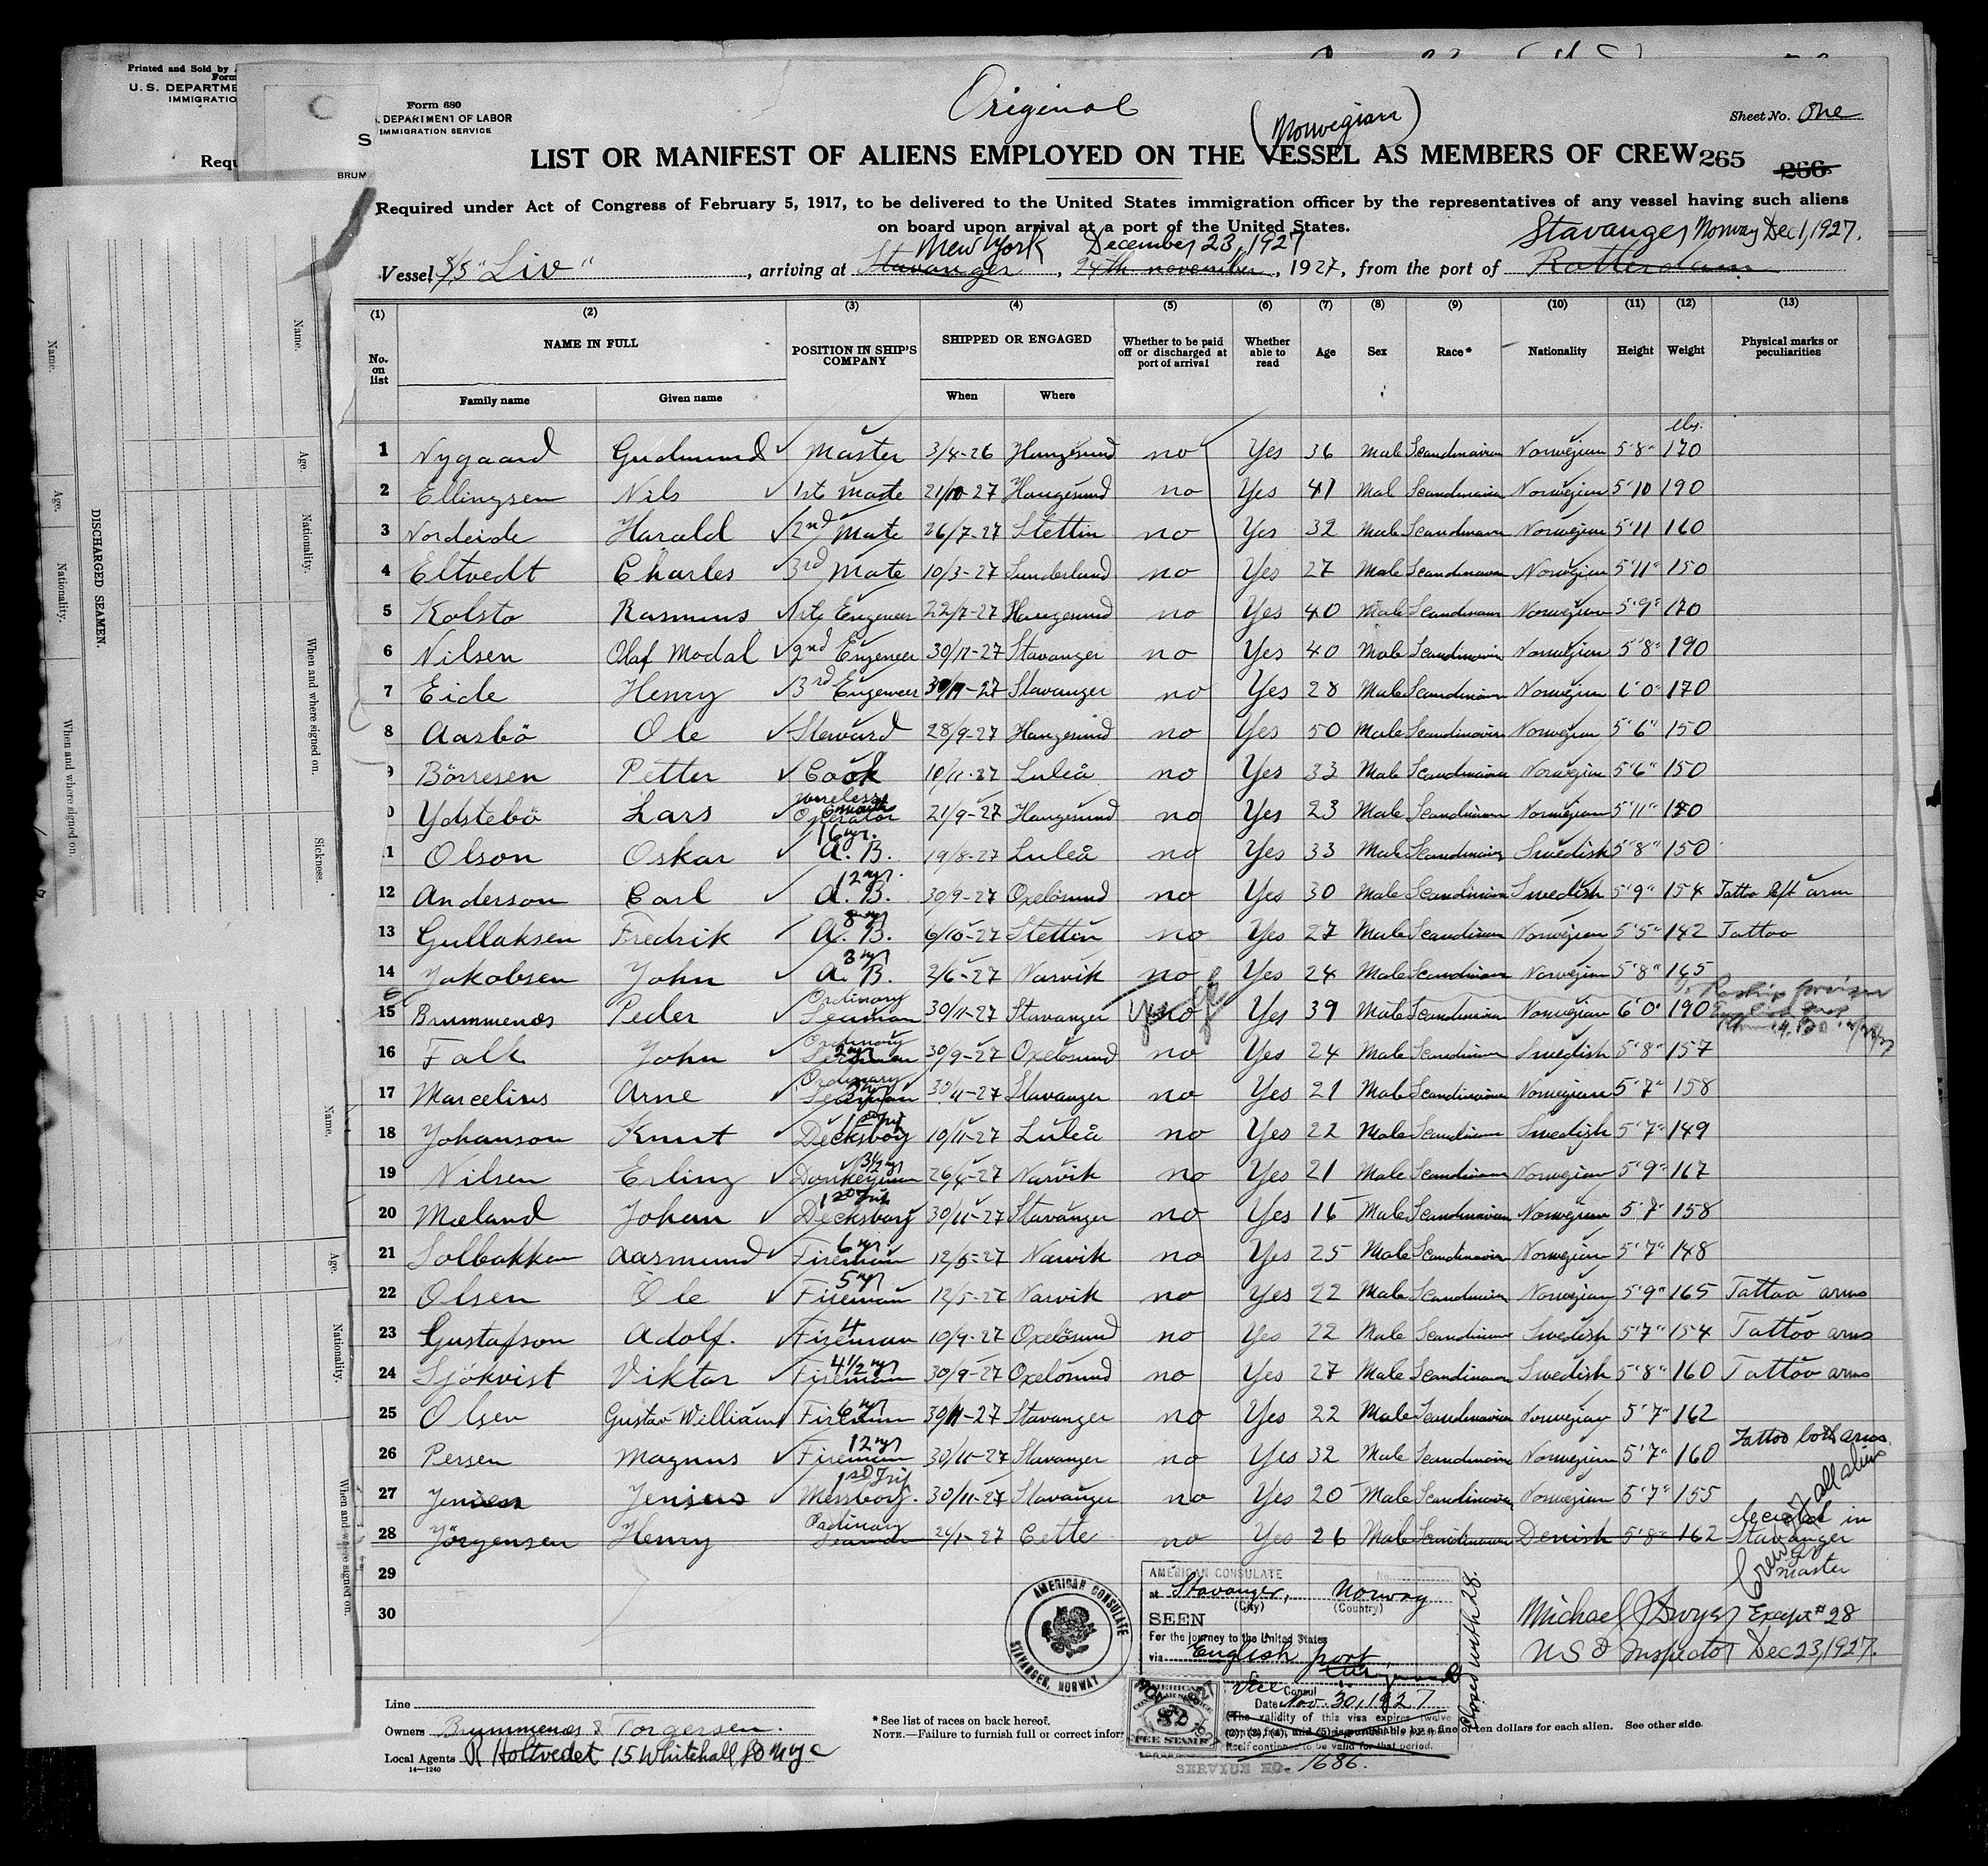 Printed and Sold by
Form
U. S. DEPARTME
IMMIGRATIO
Requ
S
BRUM
Form 680
. DEPARTMENT OF LABOR
IMMIGRATION SERVICE
Original
(Norwegian)
Sheet No. One
LIST OR MANIFEST OF ALIENS EMPLOYED ON THE VESSEL AS MEMBERS OF CREW 265 266
Required under Act of Congress of February 5, 1917, to be delivered to the United States immigration officer by the representatives of any vessel having such aliens
on board upon arrival at a port of the United States.
New York December 23, 1927 Stavanger Norway Dec 1, 1927.
Vessel S/S "Liv", arriving at Stavanger, 24th november, 1927, from the port of Rotterdam
(1) (2) (3) (4) (5) (6) (7) (8) (9) (10) (11) (12) (13)
No. on list NAME IN FULL POSITION IN SHIP'S COMPANY SHIPPED OR ENGAGED Whether to be paid off or discharged at port of arrival Whether able to read Age Sex Race* Nationality Height Weight Physical marks or peculiarities
Family name Given name When Where
lbs.
1 Nygaard Gudmund Master 3/4-26 Haugesund no Yes 36 Male Scandinavian Norwegian 5'8" 170
2 Ellingsen Nils 1st Mate 21/10-27 Haugesund no Yes 41 Mal Scandinavian Norwegian 5'10 190
3 Nordeide Harald 2nd Mate 26/7-27 Stettin no Yes 32 Male Scandinavian Norwegian 5'11 160
4 Eltvedt Charles 3rd Mate 10/3-27 Sunderland no Yes 27 Male Scandinavian Norwegian 5'11" 150
5 Kolsto Rasmus 1st Engeneer 22/7-27 Haugesund no Yes 40 Male Scandinavian Norwegian 5'9" 170
6 Nilsen Olaf Modal 2nd Engeneer 30/11-27 Stavanger no Yes 40 Male Scandinavian Norwegian 5'8" 190
7 Eide Henry 3rd Engeneer 30/11-27 Stavanger no Yes 28 Male Scandinavian Norwegian 6'0" 170
8 Aasbö Ole Steward 28/9-27 Haugesund no Yes 50 Male Scandinavian Norwegian 5'6" 150
9 Börresen Petter Cook 10/11-27 Luleå no Yes 33 Male Scandinavian Norwegian 5'6" 150
0 Ydstebö Lars wireless Operator 6 month 21/9-27 Haugesund no Yes 23 Male Scandinavian Norwegian 5'11" 170
1 Olson Oskar 16 yr. A. B. 19/8-27 Luleå no Yes 33 Male Scandinavian Swedish 5'8" 150
12 Anderson Carl 12 yr. A. B. 30/9-27 Oxelösund no Yes 30 Male Scandinavian Swedish 5'9" 154 Tattoo left arm
13 Gullaksen Fredrik 8 yr A. B. 6/10-27 Stettin no Yes 27 Male Scandinavian Norwegian 5'5" 142 Tattoo
14 Jakobsen John 3 yr A. B. 2/6-27 Narvik no Yes 24 Male Scandinavian Norwegian 5'8" 165
15 Brummenæs Peder Ordinary Seaman 30/11-27 Stavanger Yes no Yes 39 Male Scandinavian Norwegian 6'0" 190
16 Falk John Ordinary Seaman 2 yr 30/9-27 Oxelösund no Yes 24 Male Scandinavian Swedish 5'8" 157
17 Marcelius Arne Ordinary Seaman 2 yr 30/11-27 Stavanger no Yes 21 Male Scandinavian Norwegian 5'7" 158
18 Johanson Knut 1st Trip Decksboy 10/11-27 Luleå no Yes 22 Male Scandinavian Swedish 5'7" 149
19 Nilsen Erling 3½ yr Donkeyman 26/4-27 Narvik no Yes 21 Male Scandinavian Norwegian 5'9" 167
20 Mæland Johan 1st Trip Decksboy 30/11-27 Stavanger no Yes 16 Male Scandinavian Norwegian 5'7" 158
21 Solbakken Aasmund 6 yr. Fireman 12/5-27 Narvik no Yes 25 Male Scandinavian Norwegian 5'7" 148
22 Olsen Ole 5 yr Fireman 12/5-27 Narvik no Yes 22 Male Scandinavian Norwegian 5'9" 165 Tattoo arms
23 Gustafson Adolf. 4 Fireman 10/9-27 Oxelösund no Yes 22 Male Scandinavian Swedish 5'7" 154 Tattoo arms
24 Sjökvist Viktor 4½ yr Fireman 30/9-27 Oxelösund no Yes 27 Male Scandinavian Swedish 5'8" 160 Tattoo arms
25 Olsen Gustav William 6 yr Fireman 30/11-27 Stavanger no Yes 22 Male Scandinavian Norwegian 5'7" 162
26 Persen Magnus 12 yr Fireman 30/11-27 Stavanger no Yes 32 Male Scandinavian Norwegian 5'7" 160 Tattoo both arms
27 Jensen Jenius 1st Trip Messboy. 30/11-27 Stavanger no Yes 20 Male Scandinavian Norwegian 5'7" 155
28 Jörgensen Henry Ordinary Seaman 24/1-27 Cette no Yes 26 Male Scandinavian Denish 5'8" 162
29
30
in Stavanger
master
Crew all alien
Michael J Dwyer Except #28
US Inspector Dec 23, 1927.
AMERICAN CONSULATE
STAVANGER, NORWAY
AMERICAN CONSULATE No.
at Stavanger, Norway
(City) (Country)
SEEN
For the journey to the United States
via English port
Vice Consul
Date Nov. 30, 1927
(The validity of this visa expires twelve
itself continues to be valid for that period.
Closed with 28.
AMERICAN CONSULAR SERVICE
$2
FEE STAMP
SERVICE NO. 1686.
Line
Owners Brummenæs & Torgersen.
Local Agents R Holtvedet 15 Whitehall St NYC
14—1240
*See list of races on back hereof.
NOTE.—Failure to furnish full or correct infor
(2), (3), (4), and (5) is punishable by a fine of ten dollars for each alien. See other side
DISCHARGED SEAMEN.
Name. Age. Nationality. When and where signed on.
Name. Age. Nationality. When and where signed on. Sickness.
Name. Age. Nationality. When and where signed on.